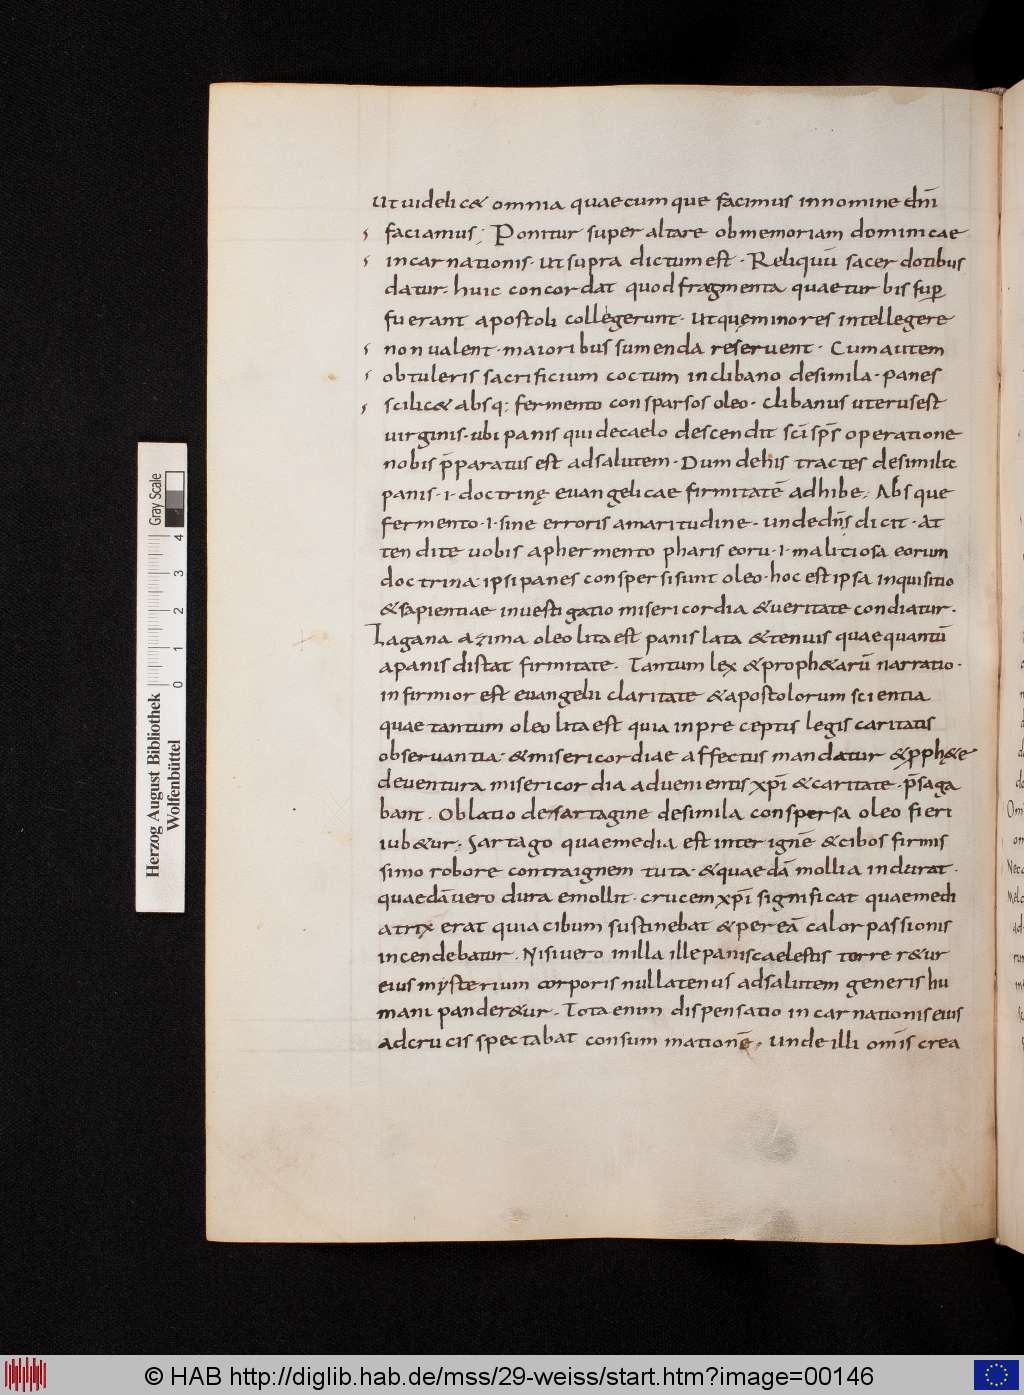 Ut uidelic& omnia quaecumque facimus innomine dn̄i
faciamus; Ponitur super altare obmemoriam dominicae
incarnationis. ut supra dictum est. Reliquū sacerdotibus
datur. huic concordat quod fragmenta quaetur bis sup̄
fuerant apostoli collegerunt. Utquęminores intellegere
nonualent. maioribus sumenda reseruent. Cumautem
obtuleris sacrificium coctum inclibano desimila. panes
scilic& absq; fermento consparsos oleo. clibanus uterusest
uirginis. ubi panis quidecaelo descendit sc̄i sp̄s operatione
nobis p̄paratus est adsalutem. Dum dehis tractes desimile
panis. i. doctrinę euangelicae firmitatē adhibe. Absque
fermento. i. sine erroris amaritudine. undedn̄s dicit. At
tendite uobis aphermento phariseoru. i. malitiosa eorum
doctrina. ipsi panes conspersisunt oleo. hoc est ipsa inquisitio
&sapientiae inuestigatio misericordia &ueritate condiatur.
Lagana azima oleo lita est panis lata &tenuis quaequantū
apanis distat firmitate. Tantum lex &proph&arū narratio.
infirmior est euangelii claritate &apostolorum scientia
quae tantum oleo lita est quia inpreceptis legis caritatis
obseruantia. &misericordiae affectus mandatur &pph&e
deuentura misericordia aduenientis xp̄i &caritate. p̄saga
bant. Oblatio desartagine desimila conspersa oleo fieri
iub&ur. Sartago quaemedia est inter ignē &cibos firmis
simo robore contraignem tuta. &quaedā mollia indurat.
quaedā uero dura emollit. crucem xp̄i significat quaemedi
atrix erat quia cibum sustinebat &per eā calor passionis
incendebatur. Nisi uero in illa ille panis caelestis torrer&ur
eius mysterium corporis nullatenus adsalutem generis hu
mani pander&ur. Tota enim dispensatio incarnationis eius
adcrucis spectabat consummationē. unde illi om̄is crea
Herzog August Bibliothek
Wolfenbüttel
0 1 2 3 4
Gray Scale
© HAB http://diglib.hab.de/mss/29-weiss/start.htm?image=00146